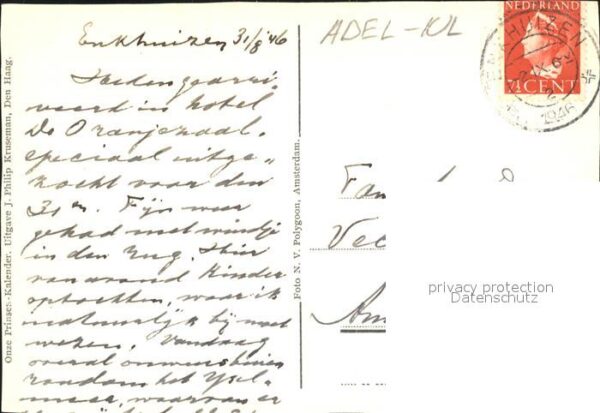 Enkhuizen 31/8 '46
Heden gearri-
veerd in hotel
De Oranjezaal.
speciaal uitge-
zocht voor den
31en. Fijn weer
gehad met windje
in den rug. Hier
vanavond kinder
optochten, waar ik
natuurlijk bij moet
wezen. Vandaag
overal onweersbuien
rondom het Ysel-
meer, waarvan er
Onze Prinses-Kalender. Uitgave J. Philip Kruseman, Den Haag.
Foto N. V. Polygoon, Amsterdam.
ADEL-KL
NEDERLAND
7½ CENT
ENKHUIZEN
1946
Fam
Vec
Am
privacy protection
Datenschutz